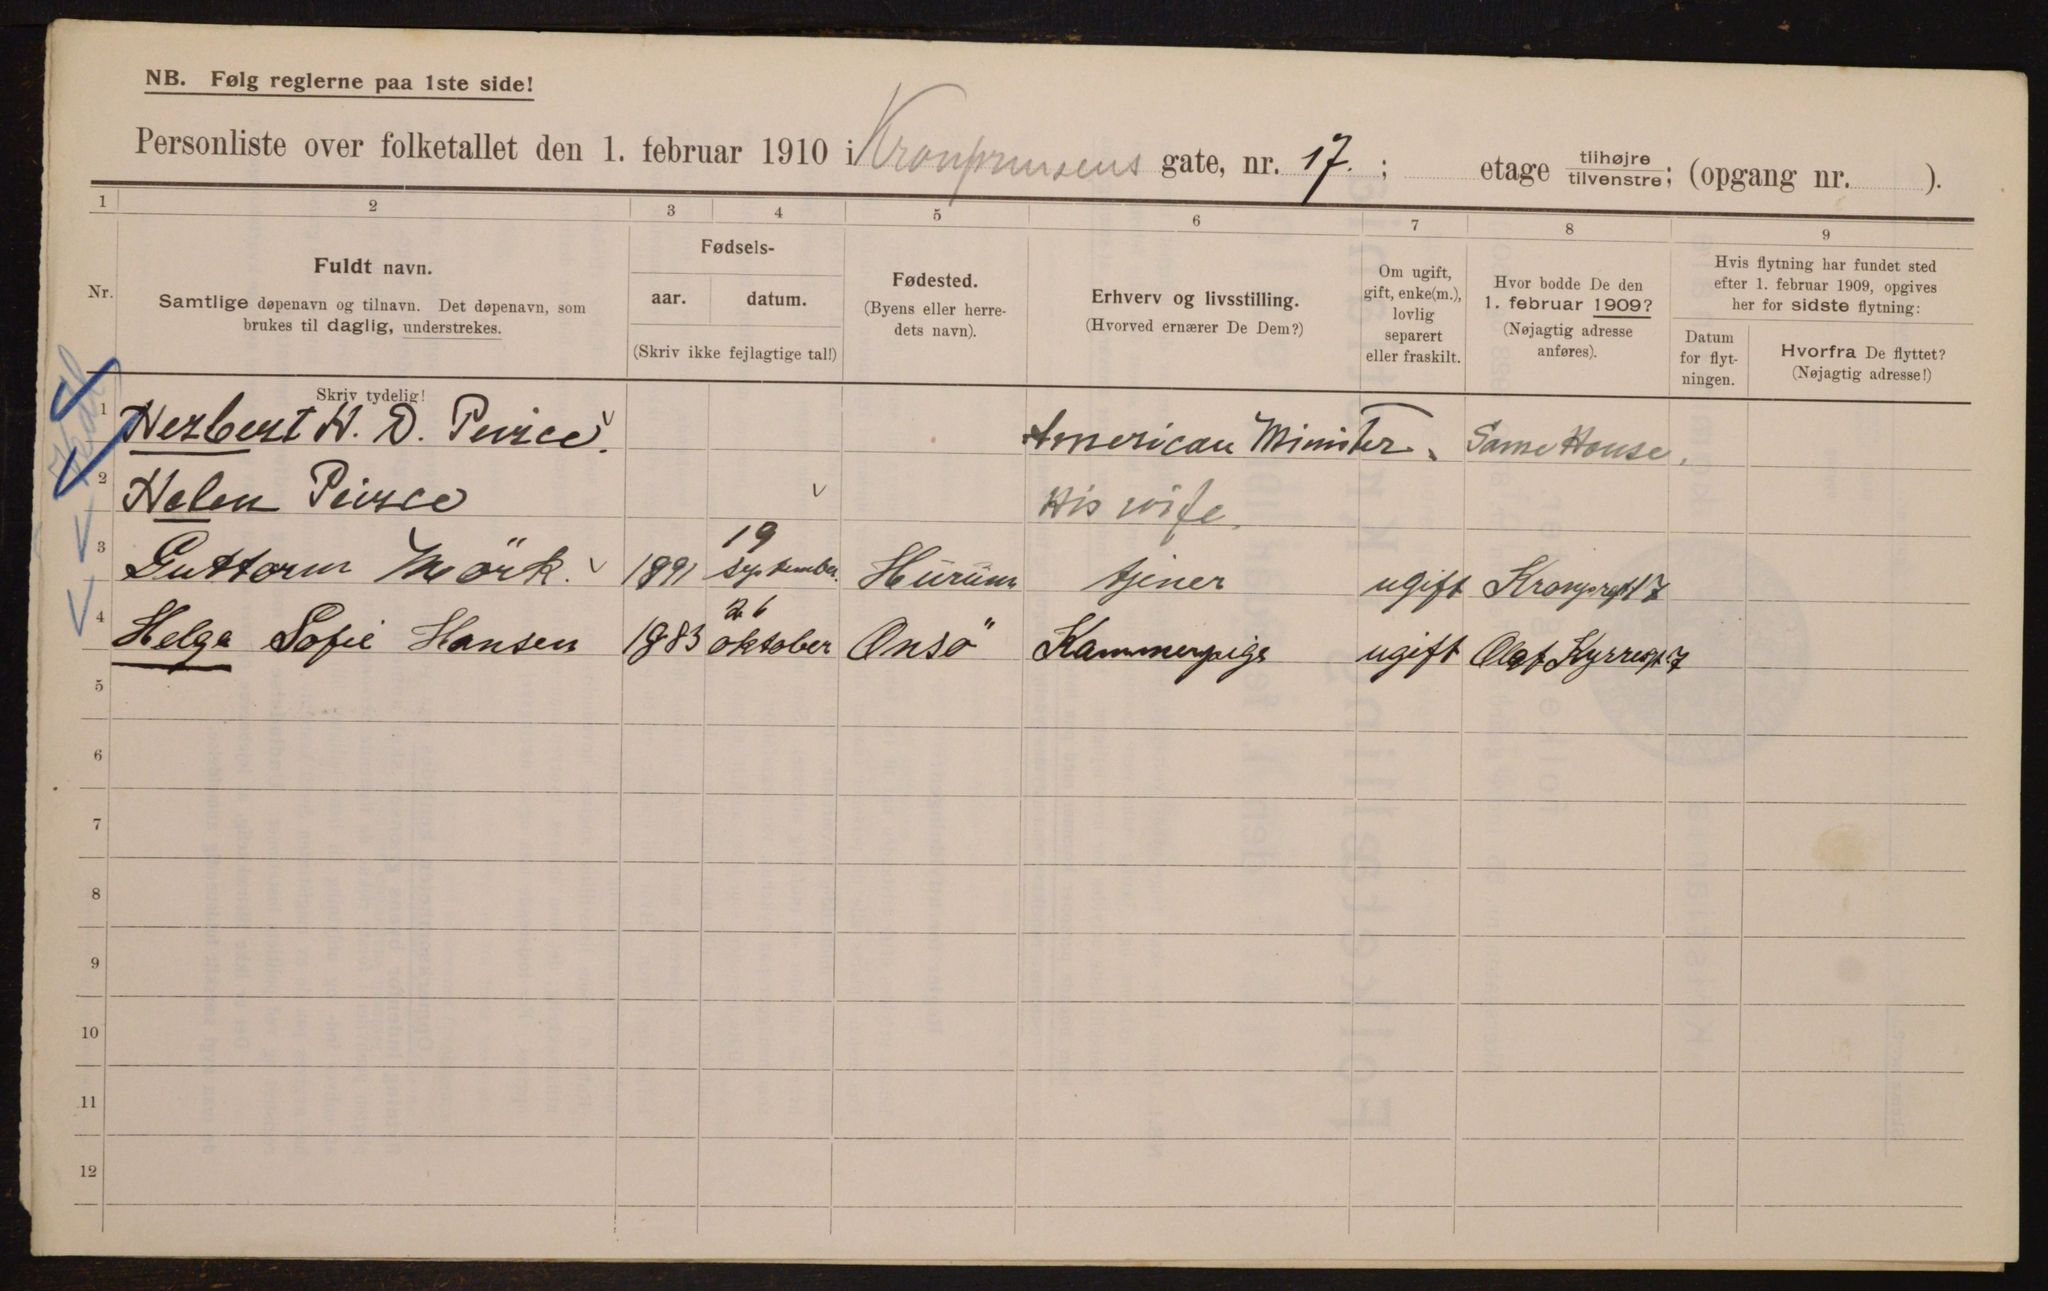 NB. Følg reglerne paa 1ste side!
Personliste over folketallet den 1. februar 1910 i Kronprinsens gate, nr. 17. ; etage tilhøjre/tilvenstre; (opgang nr. ).
1 2 3 4 5 6 7 8 9
Nr.
Fuldt navn.
Samtlige døpenavn og tilnavn. Det døpenavn, som
brukes til daglig, understrekes.
Skriv tydelig!
Fødsels-
aar. datum.
(Skriv ikke fejlagtige tal!)
Fødested.
(Byens eller herre-
dets navn).
Erhverv og livsstilling.
(Hvorved ernærer De Dem?)
Om ugift,
gift, enke(m.),
lovlig
separert
eller fraskilt.
Hvor bodde De den
1. februar 1909?
(Nøjagtig adresse
anføres).
Hvis flytning har fundet sted
efter 1. februar 1909, opgives
her for sidste flytning:
Datum
for flyt-
ningen.
Hvorfra De flyttet?
(Nøjagtig adresse!)
1 Herbert H. D. Peirce. American Minister. Same House.
2 Helen Peirce His wife.
3 Guttorm Mörk. 1891 19 september. Hürüm tjener ugift Kronprgt 17
4 Helga Sofie Hansen 1883 26 oktober Onsö Kammerpige ugift Olaf Kyrresgt 7
5
6
7
8
9
10
11
12